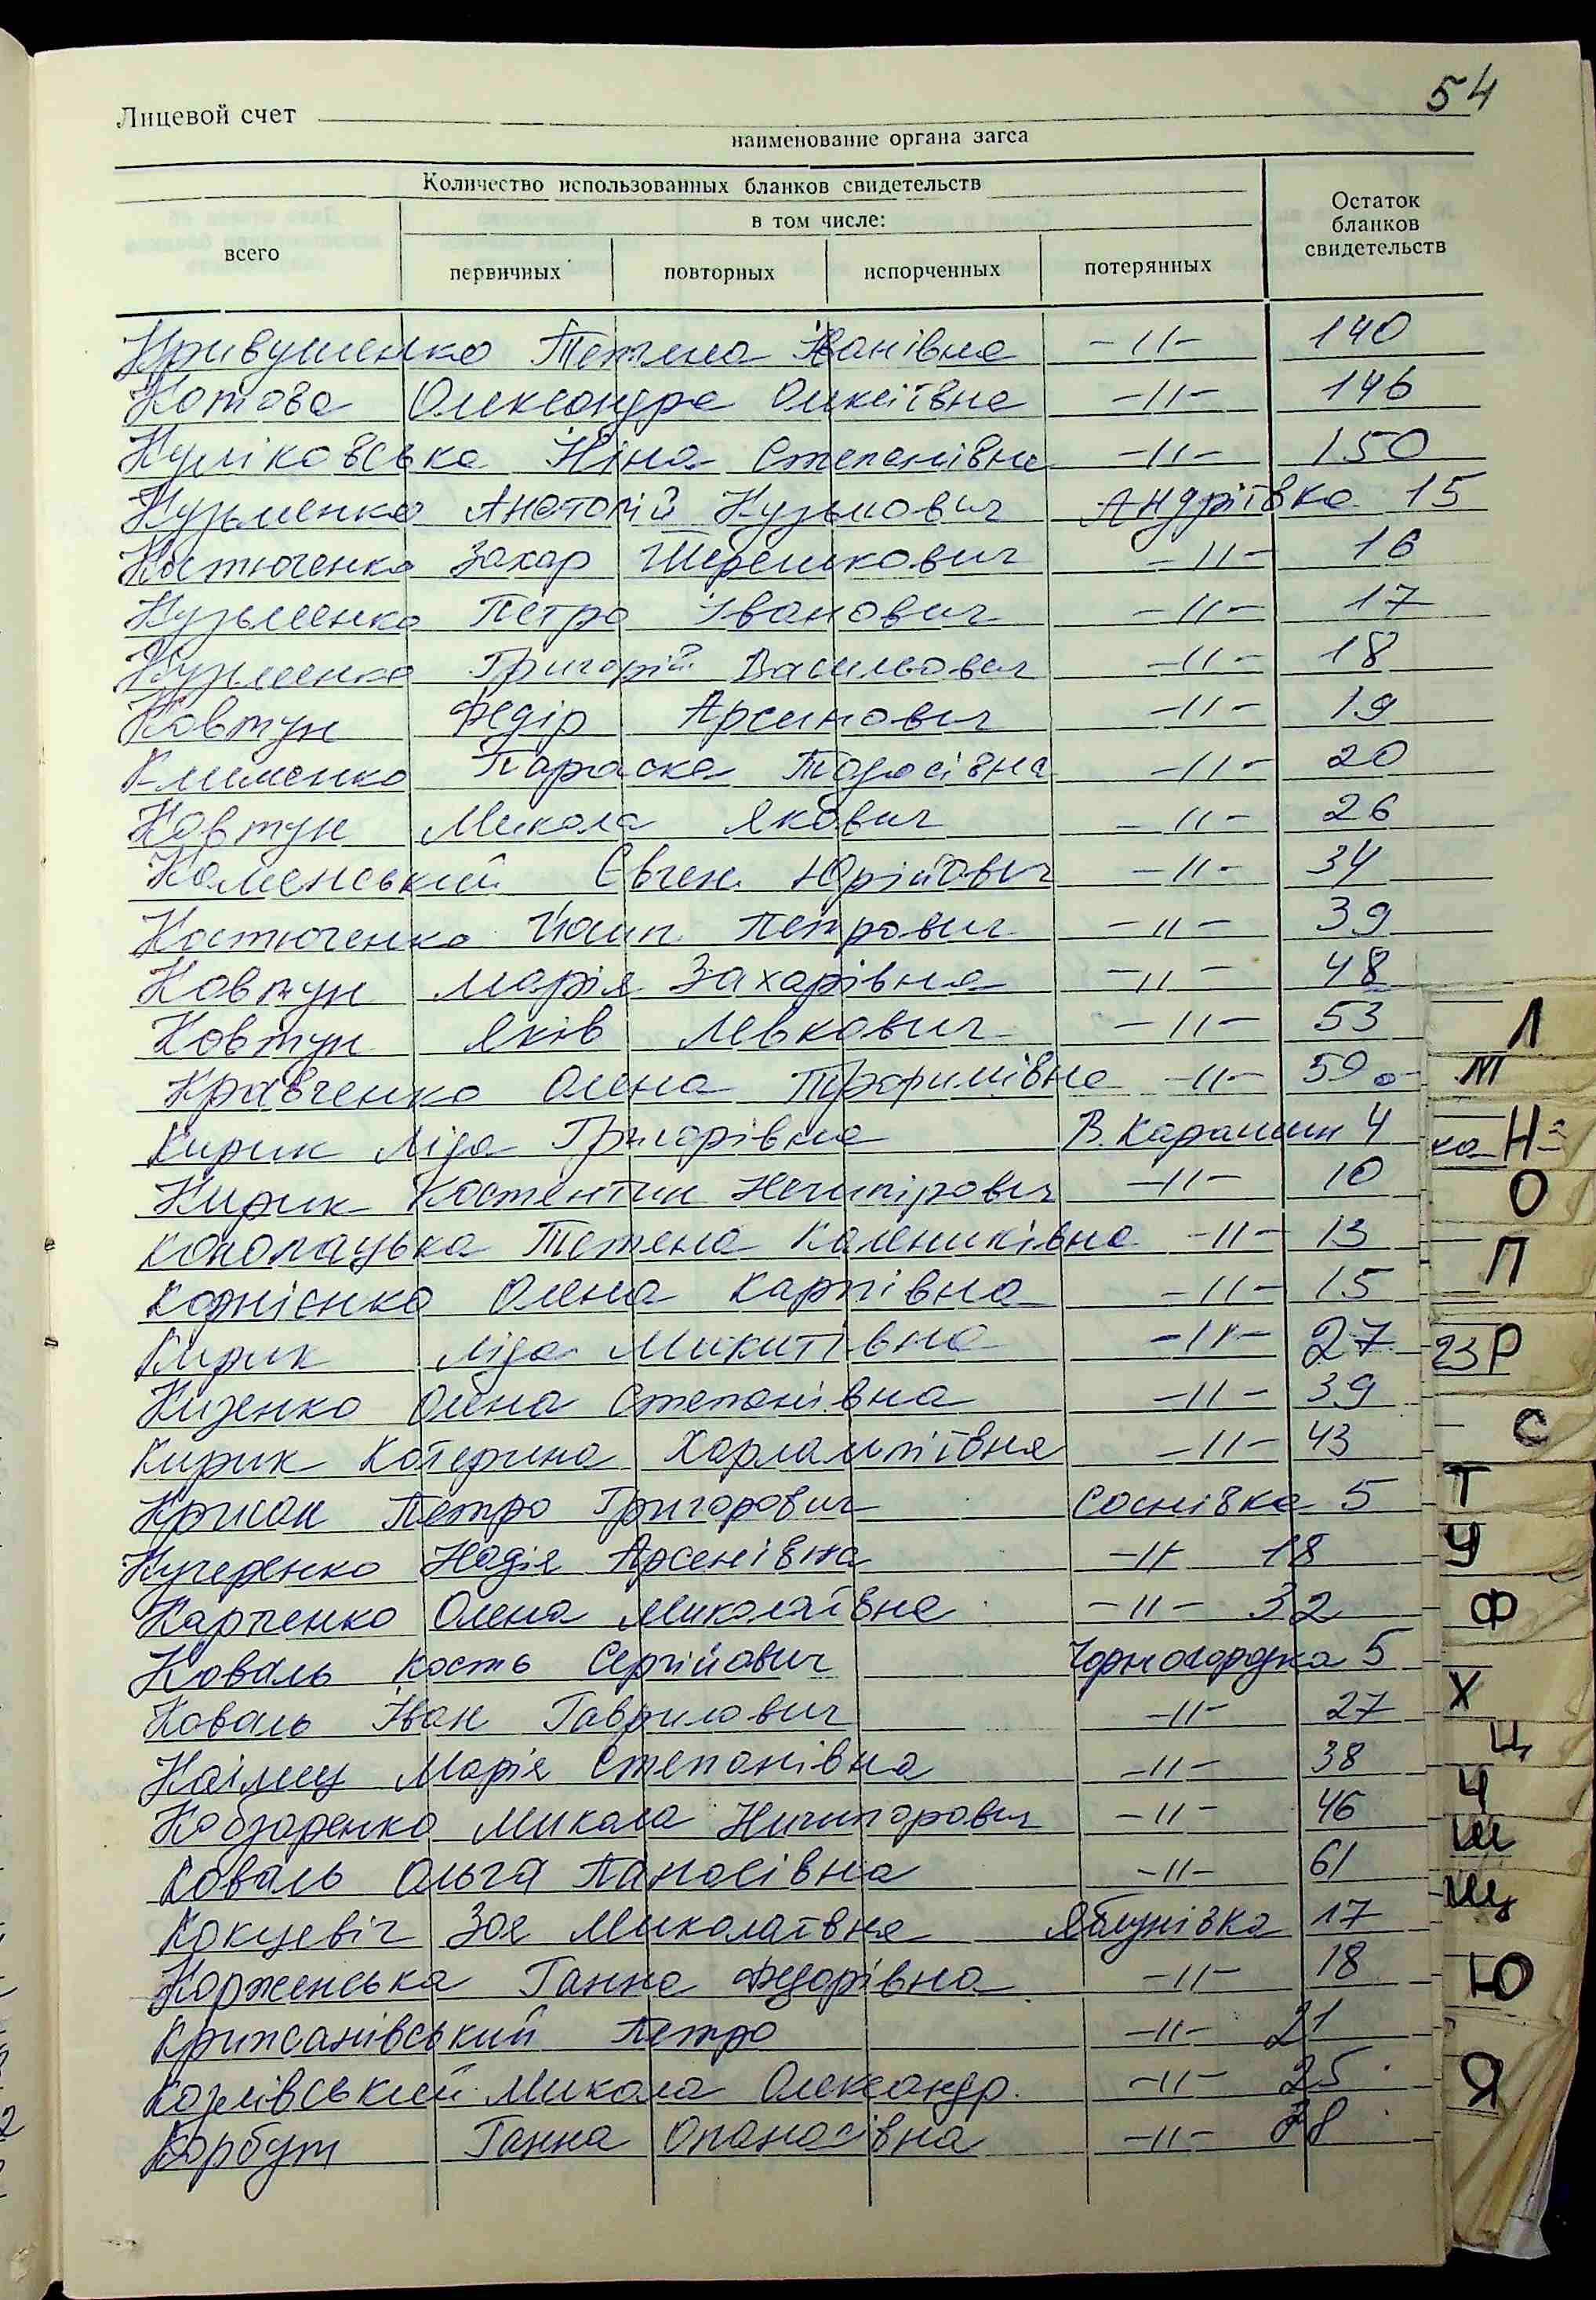 54
Лицевой счет
наименование органа загса
Количество использованных бланков свидетельств
Остаток бланков свидетельств
в том числе:
всего
первичных повторных испорченных потерянных
Кривушенко Тетяна Іванівна -//- 140
Котова Олександра Олексіївна -//- 146
Куліковська Ніна Степанівна -//- 150
Кузьменко Анатолій Кузьмович Андріївка 15
Костюченко Захар Терешкович -//- 16
Кузьменко Петро Іванович -//- 17
Кузьменко Григорій Васильович -//- 18
Ковтун Федір Арсенович -//- 19
Клименко Параска Тарасівна -//- 20
Ковтун Микола Якович -//- 26
Каменський Євген Юрійович -//- 34
Костюченко Йосип Петрович -//- 39
Ковтун Марія Захарівна -//- 48
Ковтун Яків Левкович -//- 53
Кравченко Олена Трофимівна -//- 59
Кирик Ліда Григорівна В.Карашин 4
Кирик Костентин Нечипірович -//- 10
Кополацька Тетяна Калениківна -//- 13
Корнієнко Олена Карпівна -//- 15
Кирик Ліда Микитівна -//- 27
Кизенко Олена Степанівна -//- 39
Кирик Катерина Харлампіївна -//- 43
Крисан Петро Григорович Соснівка 5
Кучеренко Надія Арсенівна -//- 18
Карпенко Олена Миколаївна -//- 32
Коваль Кость Сергійович Чорногородка 5
Коваль Іван Гаврилович -//- 27
Марія Степанівна -//- 38
Кобзаренко Микола Ничипорович -//- 46
Коваль Ольга Панасівна -//- 61
Кокцевіч Зоя Миколаївна Яблунівка 17
Корженська Ганна Федорівна -//- 18
Крижанівський Петро -//- 21
Козлівський Микола Олександр. -//- 25
Корбут Ганна Опанасівна -//- 38
Л
М
ко Н
О
П
23 Р
С
Т
У
Ф
Х
Ц
Ч
Ш
Щ
Ю
Я